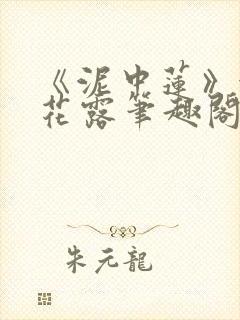 《泥中蓮》
花露筆趣閣
朱元龍